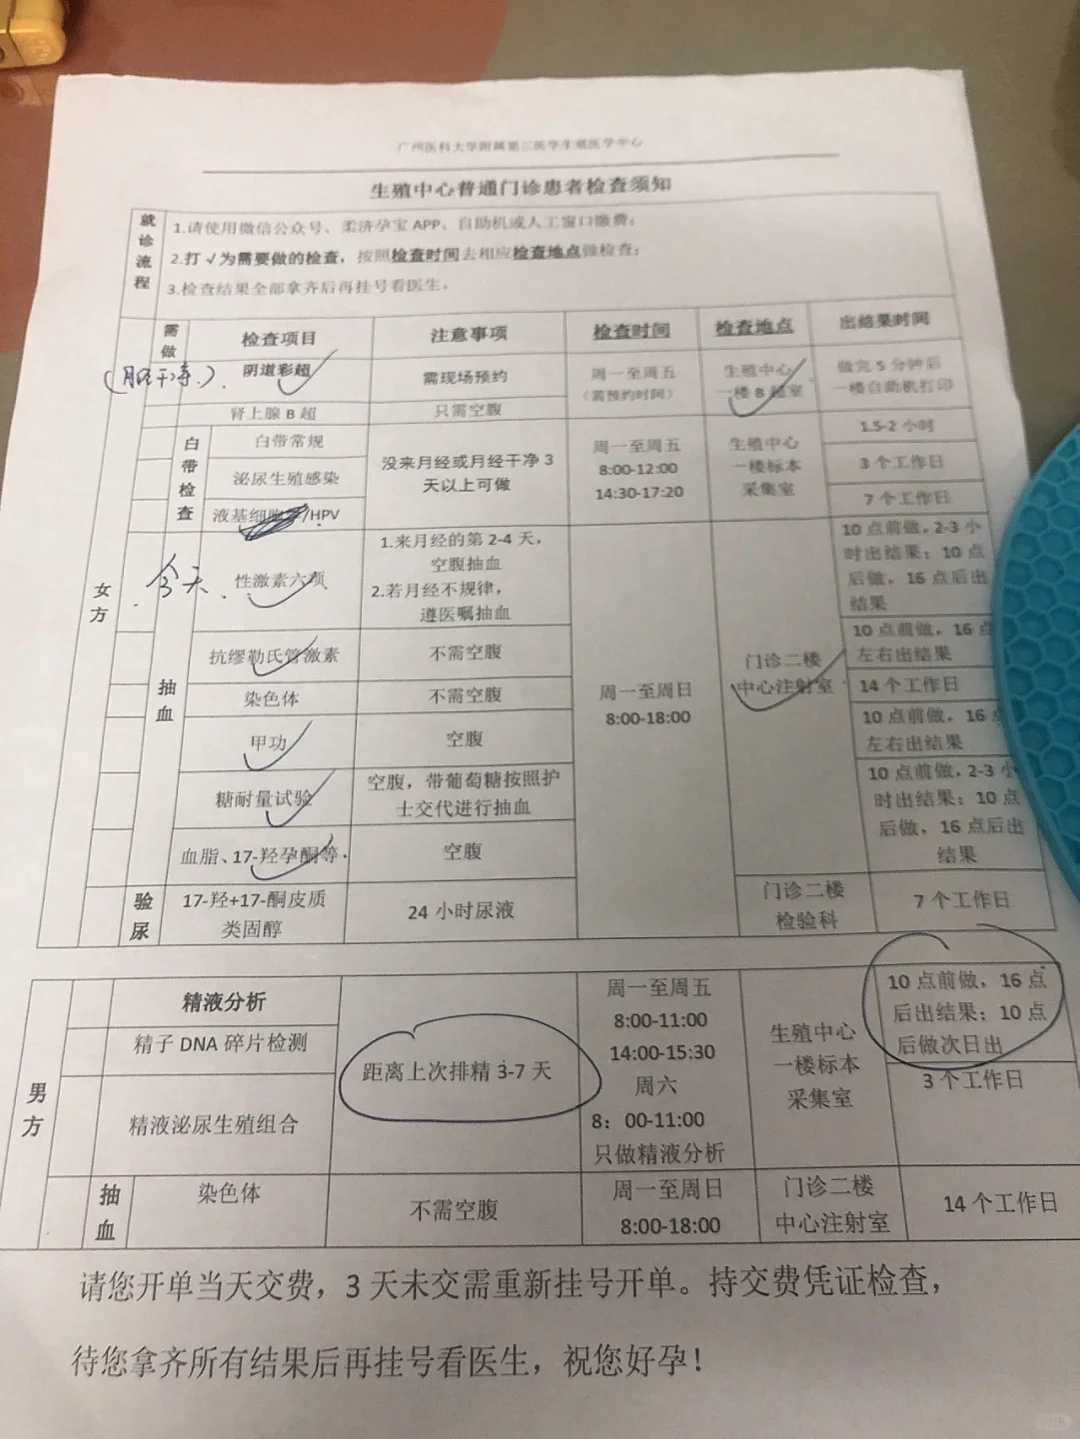 广州医科大学附属第三医学生殖医学中心
生殖中心普通门诊患者检查须知
就诊流程
1.请使用微信公众号、柔济孕宝 APP、自助机或人工窗口缴费;
2.打 √ 为需要做的检查，按照检查时间去相应检查地点做检查;
3.检查结果全部拿齐后再挂号看医生。
需做 检查项目 注意事项 检查时间 检查地点 出结果时间
女方
阴道彩超 需现场预约 周一至周五 生殖中心 做完 5 分钟后
(需预约时间) 一楼 B 超室 一楼自助机打印
肾上腺 B 超 只需空腹
白带检查
白带常规 1.5-2 小时
泌尿生殖感染 3 个工作日
/HPV 7 个工作日
没来月经或月经干净 3
天以上可做
周一至周五
8:00-12:00
14:30-17:20
生殖中心
一楼标本
采集室
抽血
今天
性激素六项
1.来月经的第 2-4 天，
空腹抽血
2.若月经不规律，
遵医嘱抽血
10 点前做，2-3 小
时出结果；10 点
后做，16 点后出
结果
抗缪勒氏管激素 不需空腹
10 点前做，16 点
左右出结果
染色体 不需空腹 14 个工作日
甲功 空腹
10 点前做，16
左右出结果
糖耐量试验
空腹，带葡萄糖按照护
士交代进行抽血
血脂、17-羟孕酮等. 空腹
10 点前做，2-3 小
时出结果；10 点
后做，16 点后出
结果
周一至周日
8:00-18:00
门诊二楼
中心注射室
验尿
17-羟+17-酮皮质
类固醇
24 小时尿液
门诊二楼
检验科
7 个工作日
男方
精液分析
精子 DNA 碎片检测
精液泌尿生殖组合
距离上次排精 3-7 天
周一至周五
8:00-11:00
14:00-15:30
周六
8：00-11:00
只做精液分析
生殖中心
一楼标本
采集室
10 点前做，16 点
后出结果；10 点
后做次日出
3 个工作日
抽血
染色体 不需空腹
周一至周日
8:00-18:00
门诊二楼
中心注射室
14 个工作日
请您开单当天交费，3 天未交需重新挂号开单。持交费凭证检查，
待您拿齐所有结果后再挂号看医生，祝您好孕！